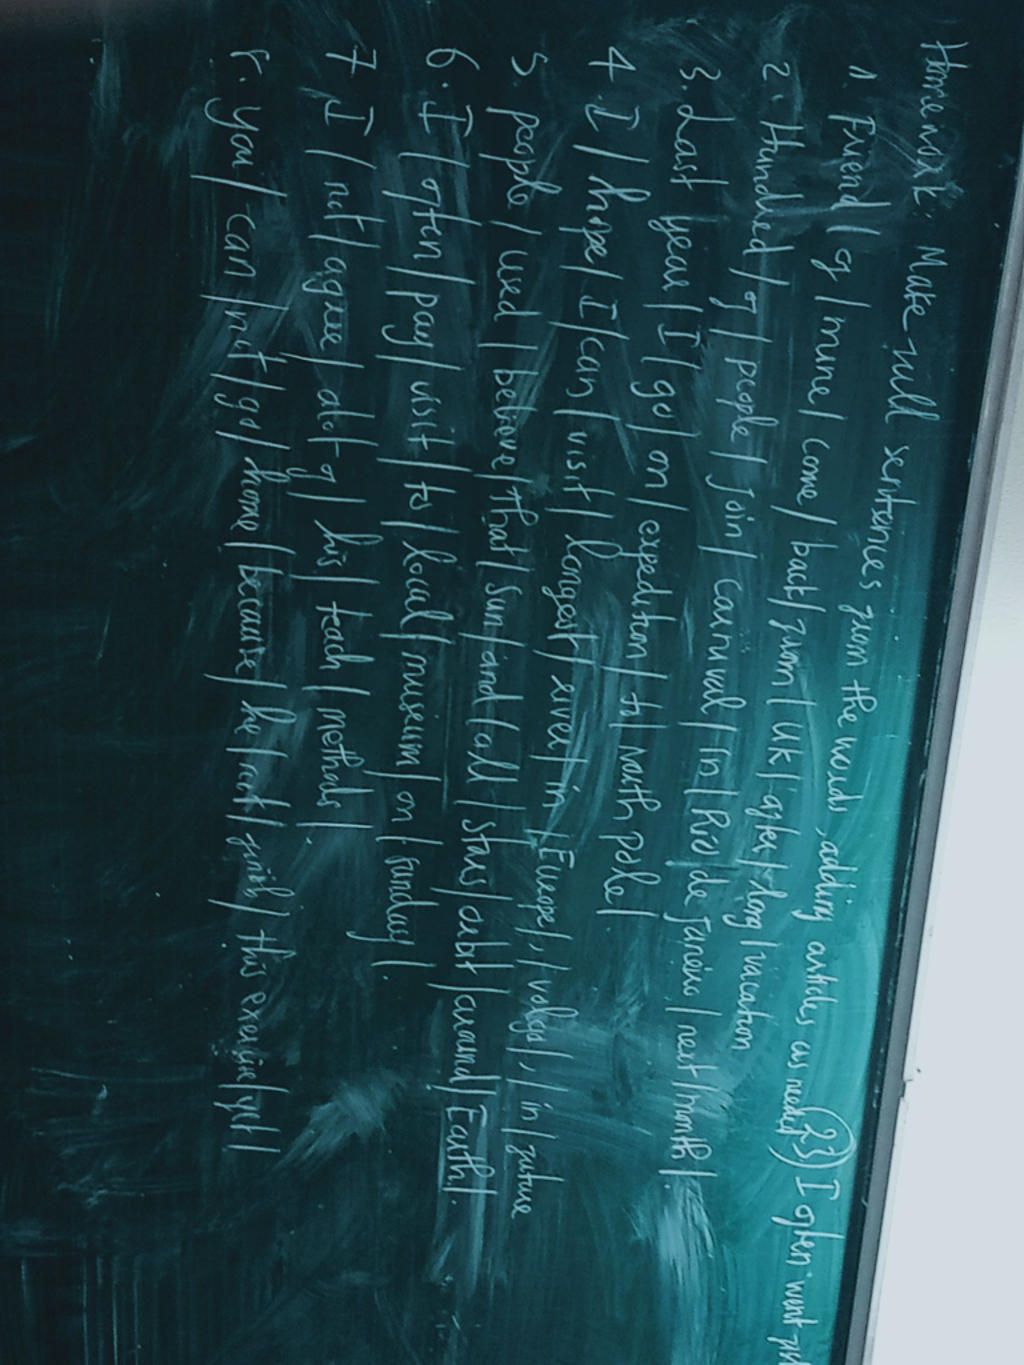 Homework. Make full sentences from the words, adding articles as needed
1. Friend / of / mine / come / back / from / UK / after / long / vacation
2. Hundred / of / people / Join / carnival / in / Rio / de Janeiro / next / month /
3. Last year / I / go / on / expedition / to North pole /
4. I / hope / I / can / visit / longest / river / in / Europe /, / volga /, / in / future
5. people / used / believe / that / sun / and / all / stars / orbit / around / Earth /.
6. I / often / pay / visit / to / local / museum / on / Sunday /.
7 I / not / agree / alot of / his / teach / methods /.
8. you / can / not / go / home / because / he / not / finish / this exercise / yet /
23) I often went